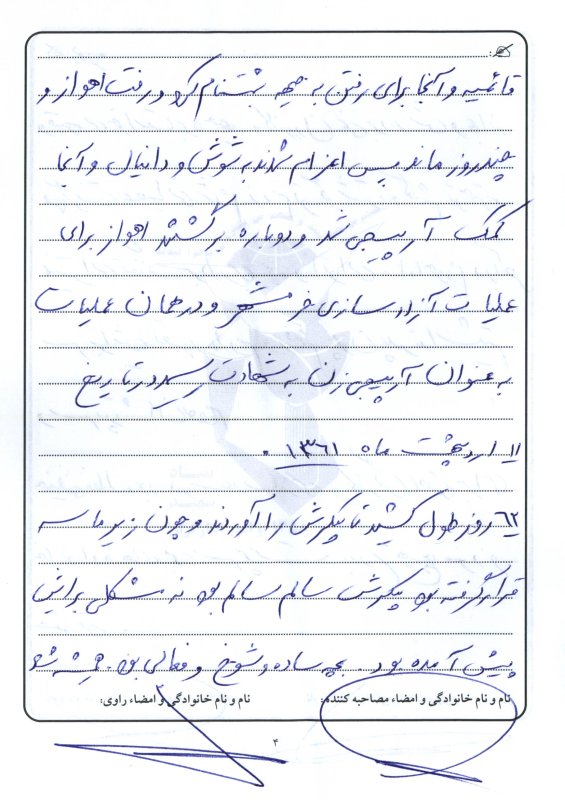 قائمیه و آنجا برای رفتن به جبهه ثبت نام کرد و رفت اهواز و
چند روز ماند پس اعزام شدند به شوش و دانیال و آنجا
کمک آرپیجی شد و دوباره برگشتند اهواز برای
عملیات آزادسازی خرمشهر و در همان عملیات
به عنوان آرپیجی زن به شهادت رسید در تاریخ
۱۱ اردیبهشت ماه ۱۳۶۱ .
۶۲ روز طول کشید تا پیکرش را آوردند و چون زیر ماسه
قرار گرفته بود پیکرش سالم سالم بود نه مشکلی برایش
پیش آمده بود . بچه ساده و شوخ و فعالی بود . همیشه
نام و نام خانوادگی و امضاء مصاحبه کننده: نام و نام خانوادگی و امضاء راوی:
۴